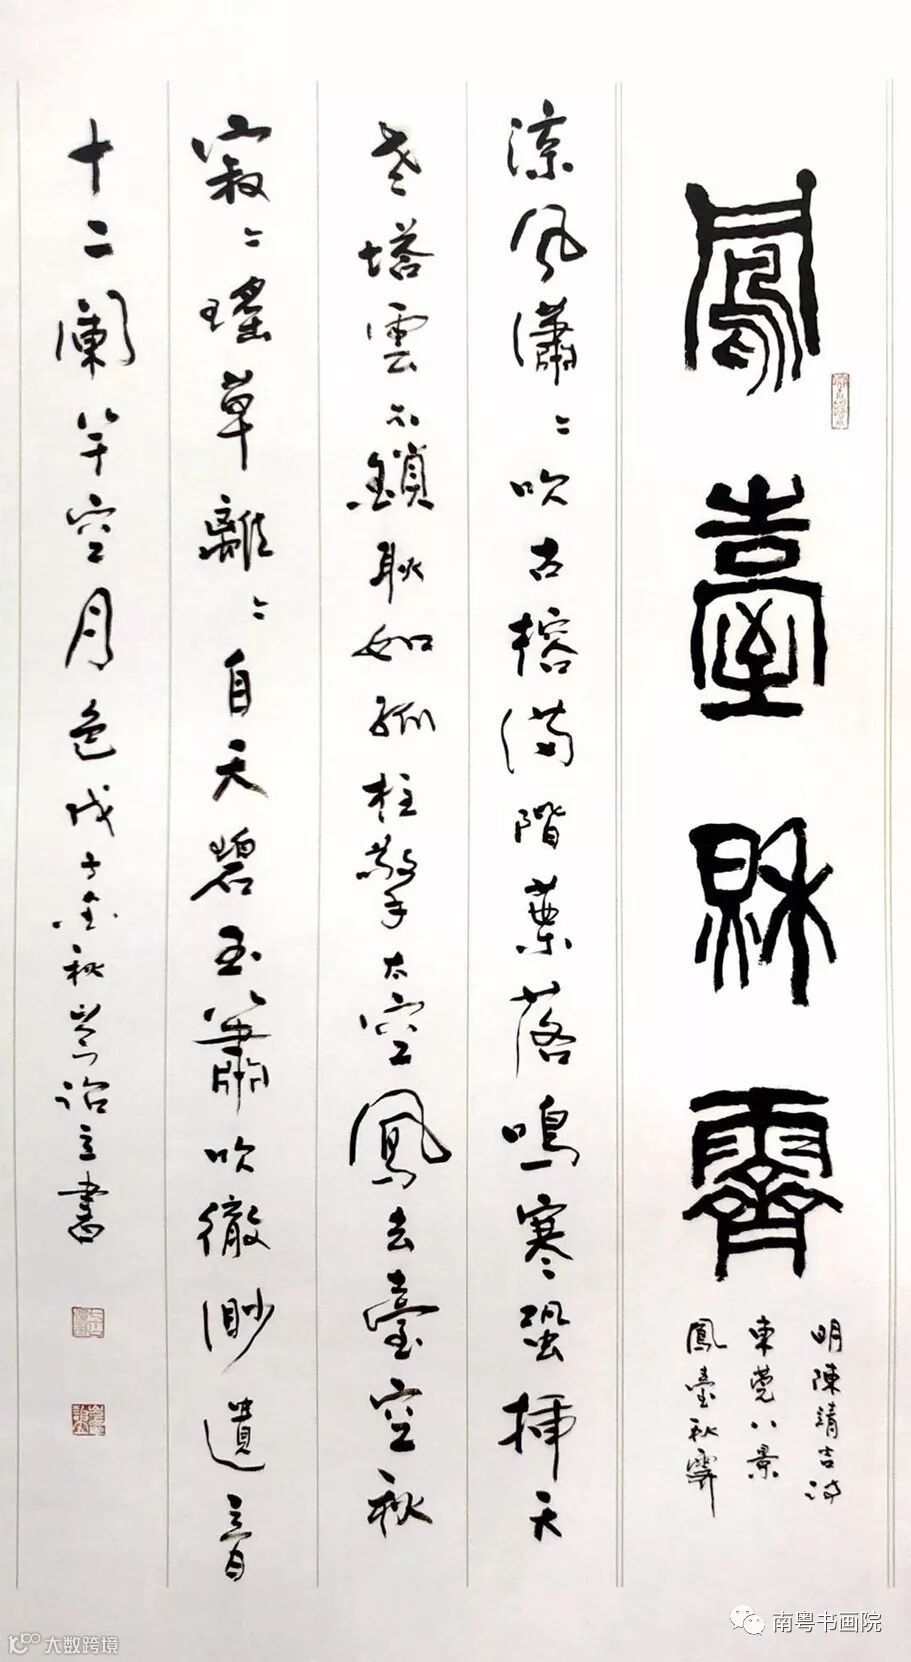 鳳臺秋霽
明陳靖吉詩
東莞八景
鳳臺秋霽
涼風瀟〻吹古榕滿階葉落鳴寒蛩插天
老塔雲不鎖耿如孤柱擎太空鳳去臺空秋
寂〻瑤草離〻自天碧玉簫吹徹渺遺音
十二闌竿空月色戊子金秋
立書
南粤书画院
大数跨境